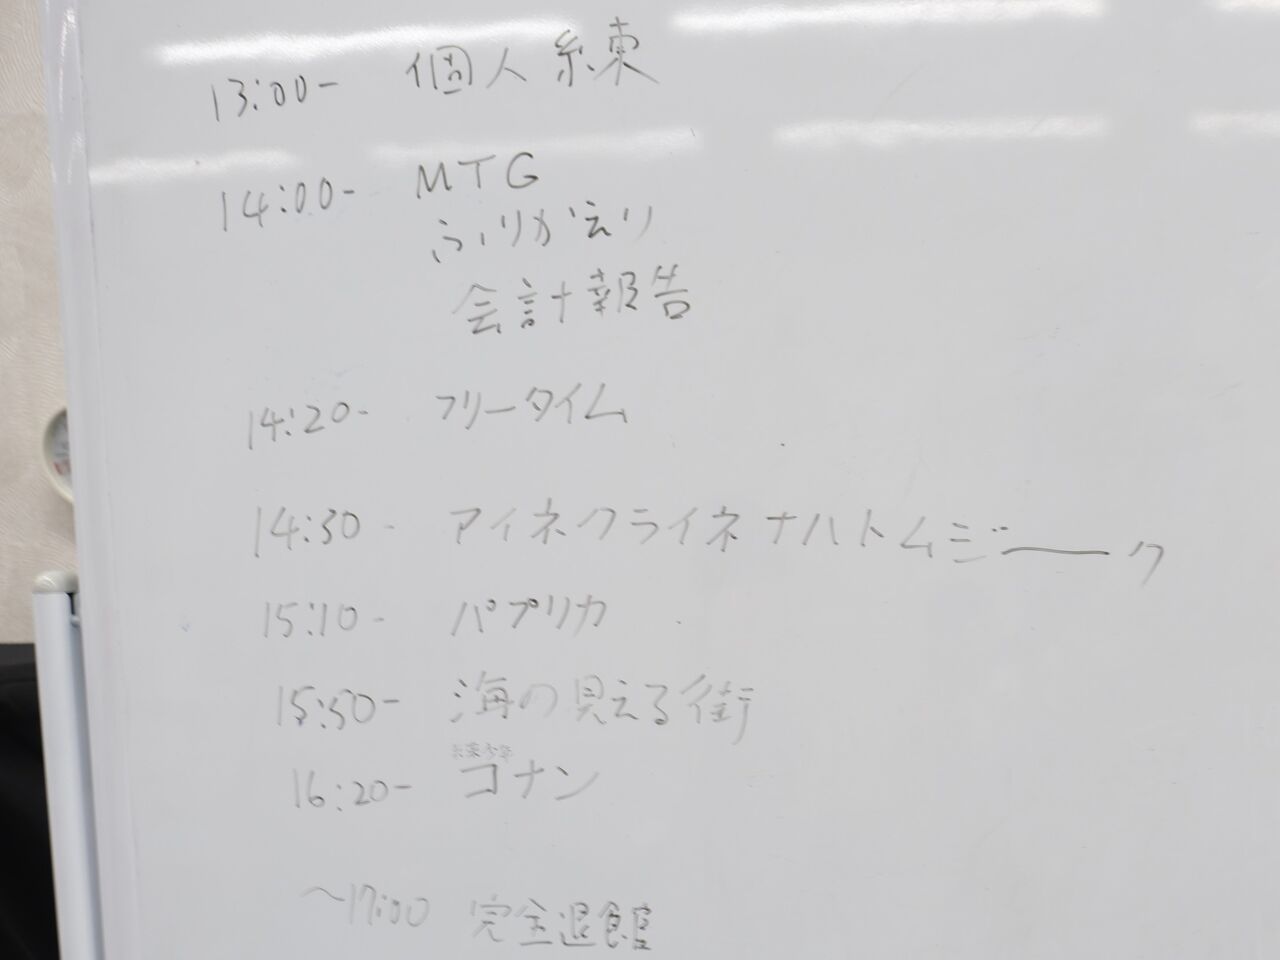 13:00- 個人練
14:00- MTG
ふりかえり
会計報告
14:20- フリータイム
14:30- アイネクライネナハトムジーク
15:10- パプリカ
15:50- 海の見える街
未来少年
16:20- コナン
〜17:00 完全退館